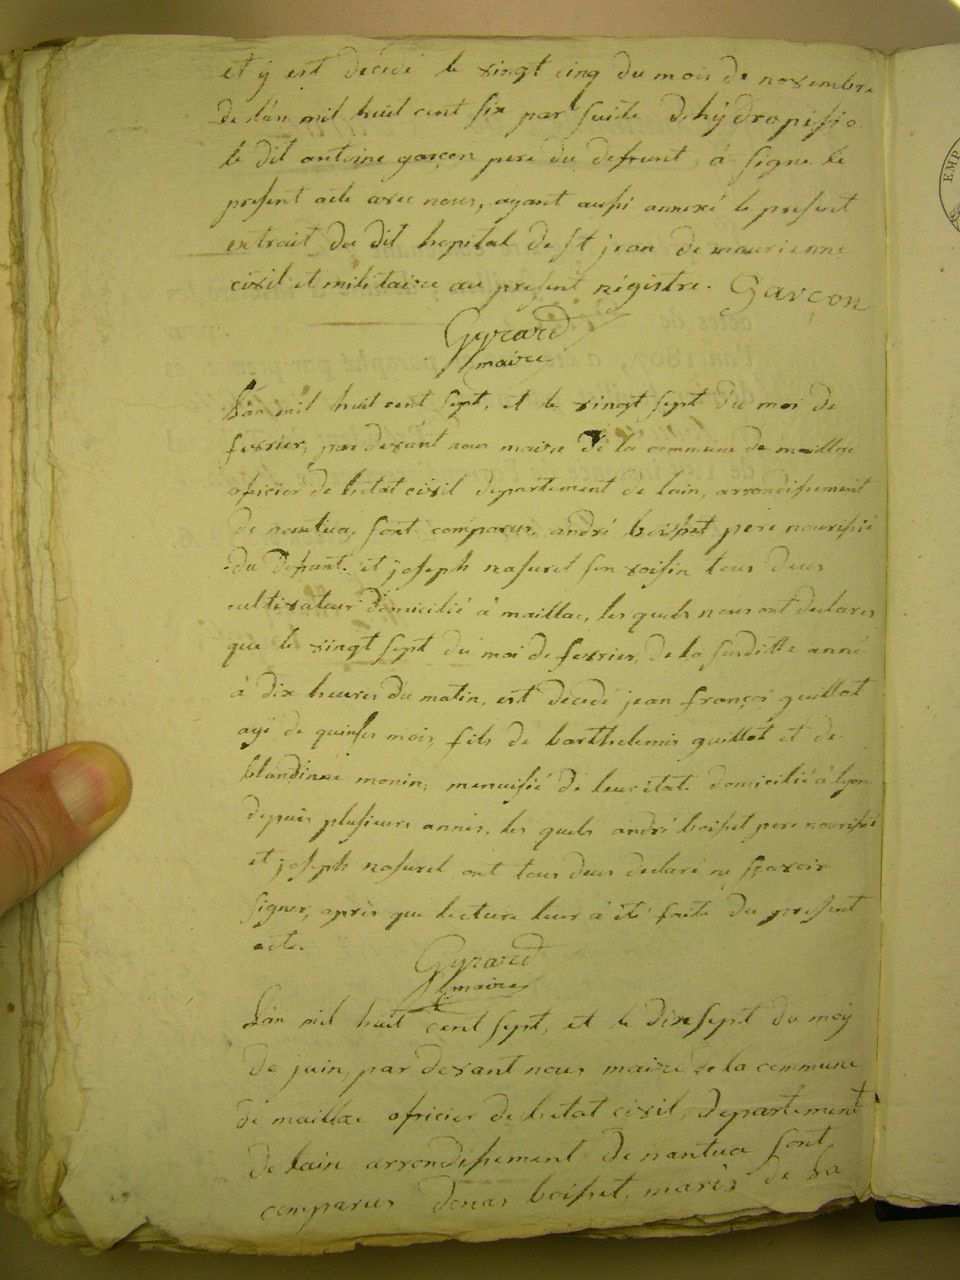 et y est décédé le vingt cinq du mois de novembre
de l'an mil huit cent six par suite d'hydropisie
le dit antoine garçon pere du defunt, à signe le
present acte avec nous, ayant aussi annexé le present
extrait du dit hopital de st jean de maurienne
civil et militaire au present régistre. Garçon
Gyrard
maire
L'an mil huit cent sept, et le vingt sept du moi de
fevrier, par devant nous maire de la commune de maillac
oficier de l'etat civil departement de lain, arrondissement
de nantua, sont comparus, andré boisset pere nourissié
du defunt et joseph nasurel son voisin tous deus
cultivateur domicilié à maillac, les quels nous ont declares
que le vingt sept du moi de fevrier, de la susditte anné
à dix heures du matin, est décédé jean françoi guillot
agé de quinses mois, fils de barthelemis guillot et de
blandinne monin, menuisié de leur état domicilié à lyon
depuis plusieurs annés, les quels andré boisset pere nourissié
et joseph nasurel ont tous deus declaré ne sçavoir
signer, après que lecture leur à été faite du present
acte.
Gyrard
maire
L'an mil huit cent sept, et le dix sept du moy
de juin, par devant nous maire de la commune
de maillac oficier de l'etat civil, departement
de lain arrondissement de nantua sont
comparus boisset, maris de la
EMP